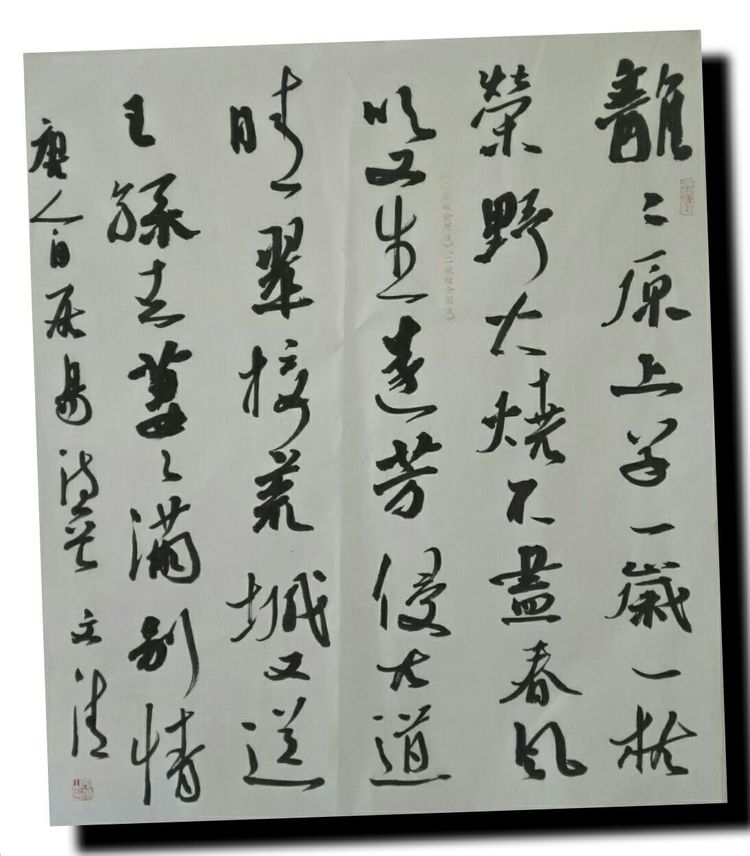 離〻原上草一歲一枯
榮野火燒不盡春風
吹又生遠芳侵古道
晴翠接荒城又送
王孫去萋〻滿別情
唐人白居易詩 文清